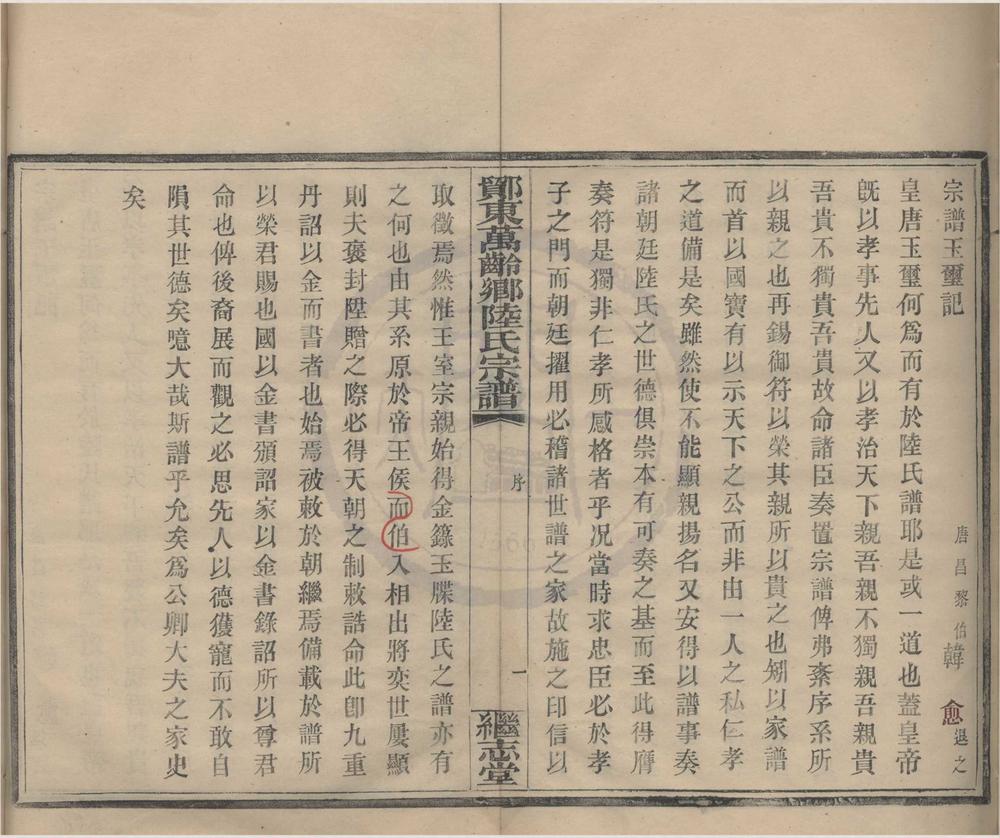 宗譜玉璽記
唐昌黎伯韓愈退之
皇唐玉璽何爲而有於陸氏譜耶是或一道也蓋皇帝
旣以孝事先人又以孝治天下親吾親不獨親吾親貴
吾貴不獨貴吾貴故命諸臣奏置宗譜俾弗紊序系所
以親之也再錫御符以榮其親所以貴之也矧以家譜
而首以國寶有以示天下之公而非出一人之私仁孝
之道備是矣雖然使不能顯親揚名又安得以譜事奏
諸朝廷陸氏之世德俱崇本有可奏之基而至此得膺
奏符是獨非仁孝所感格者乎況當時求忠臣必於孝
子之門而朝廷擢用必稽諸世譜之家故施之印信以
鄮東萬齡鄉陸氏宗譜
序
一
繼志堂
取徵焉然惟王室宗親始得金籙玉牒陸氏之譜亦有
之何也由其系原於帝王侯而伯入相出將奕世屢顯
則夫褒封陞贈之際必得天朝之制敕誥命此卽九重
丹詔以金而書者也始焉被敕於朝繼焉備載於譜所
以榮君賜也國以金書頒詔家以金書錄詔所以尊君
命也俾後裔展而觀之必思先人以德獲寵而不敢自
隕其世德矣噫大哉斯譜乎允矣爲公卿大夫之家史
矣